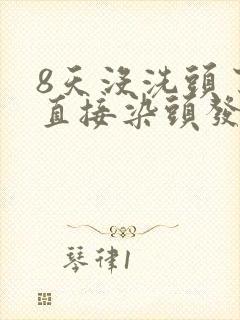 8天沒洗頭
直接染頭發
琴律1